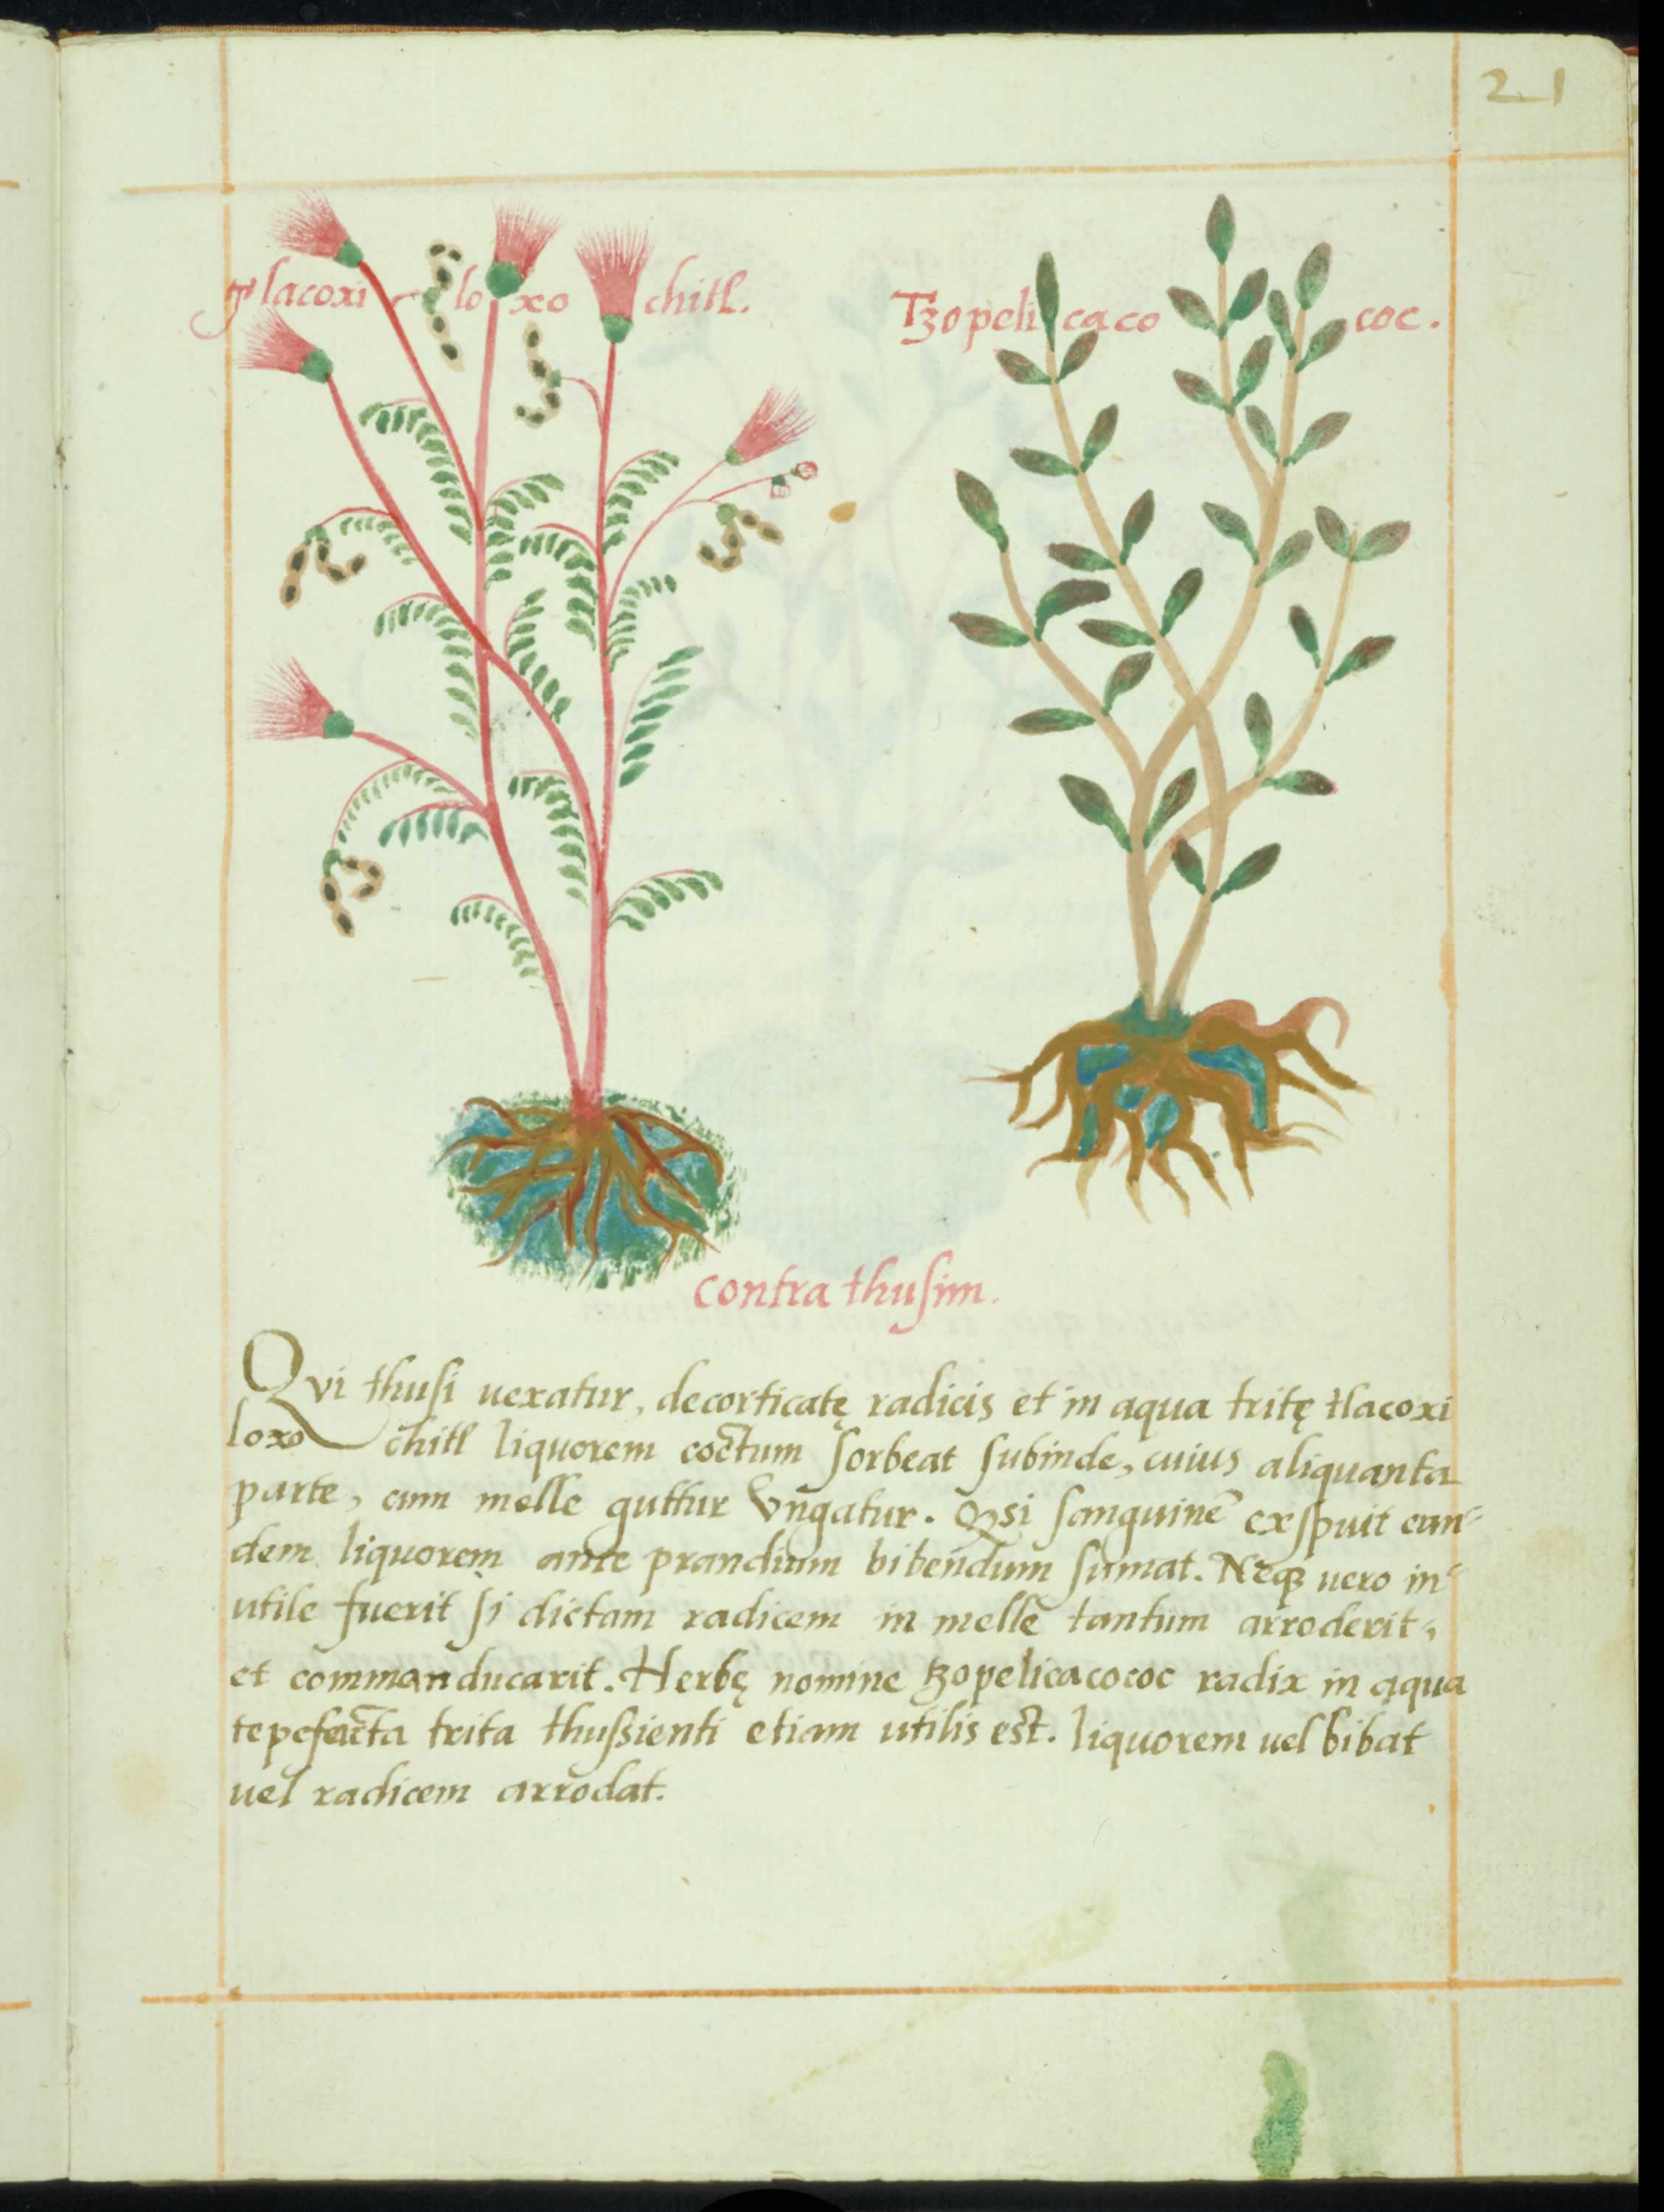 21
Tlacoxiloxochitl.
Tzopelicacococ.
contra thusim.
Qvi thusi uexatur, decorticatę radicis et in aqua tritę tlacoxi
loxochitl liquorem coctum sorbeat subinde, cuius aliquanta
parte, cum melle guttur vngatur. Qsi sanguinē exspuit eun-
dem liquorem ante prandium bibendum sumat. Neqꝫ uero in-
utile fuerit si dictam radicem in melle tantum arroderit,
et commanducarit. Herbę nomine tzopelicacococ radix in aqua
tepefacta trita thussienti etiam utilis est. liquorem uel bibat
uel radicem arrodat.